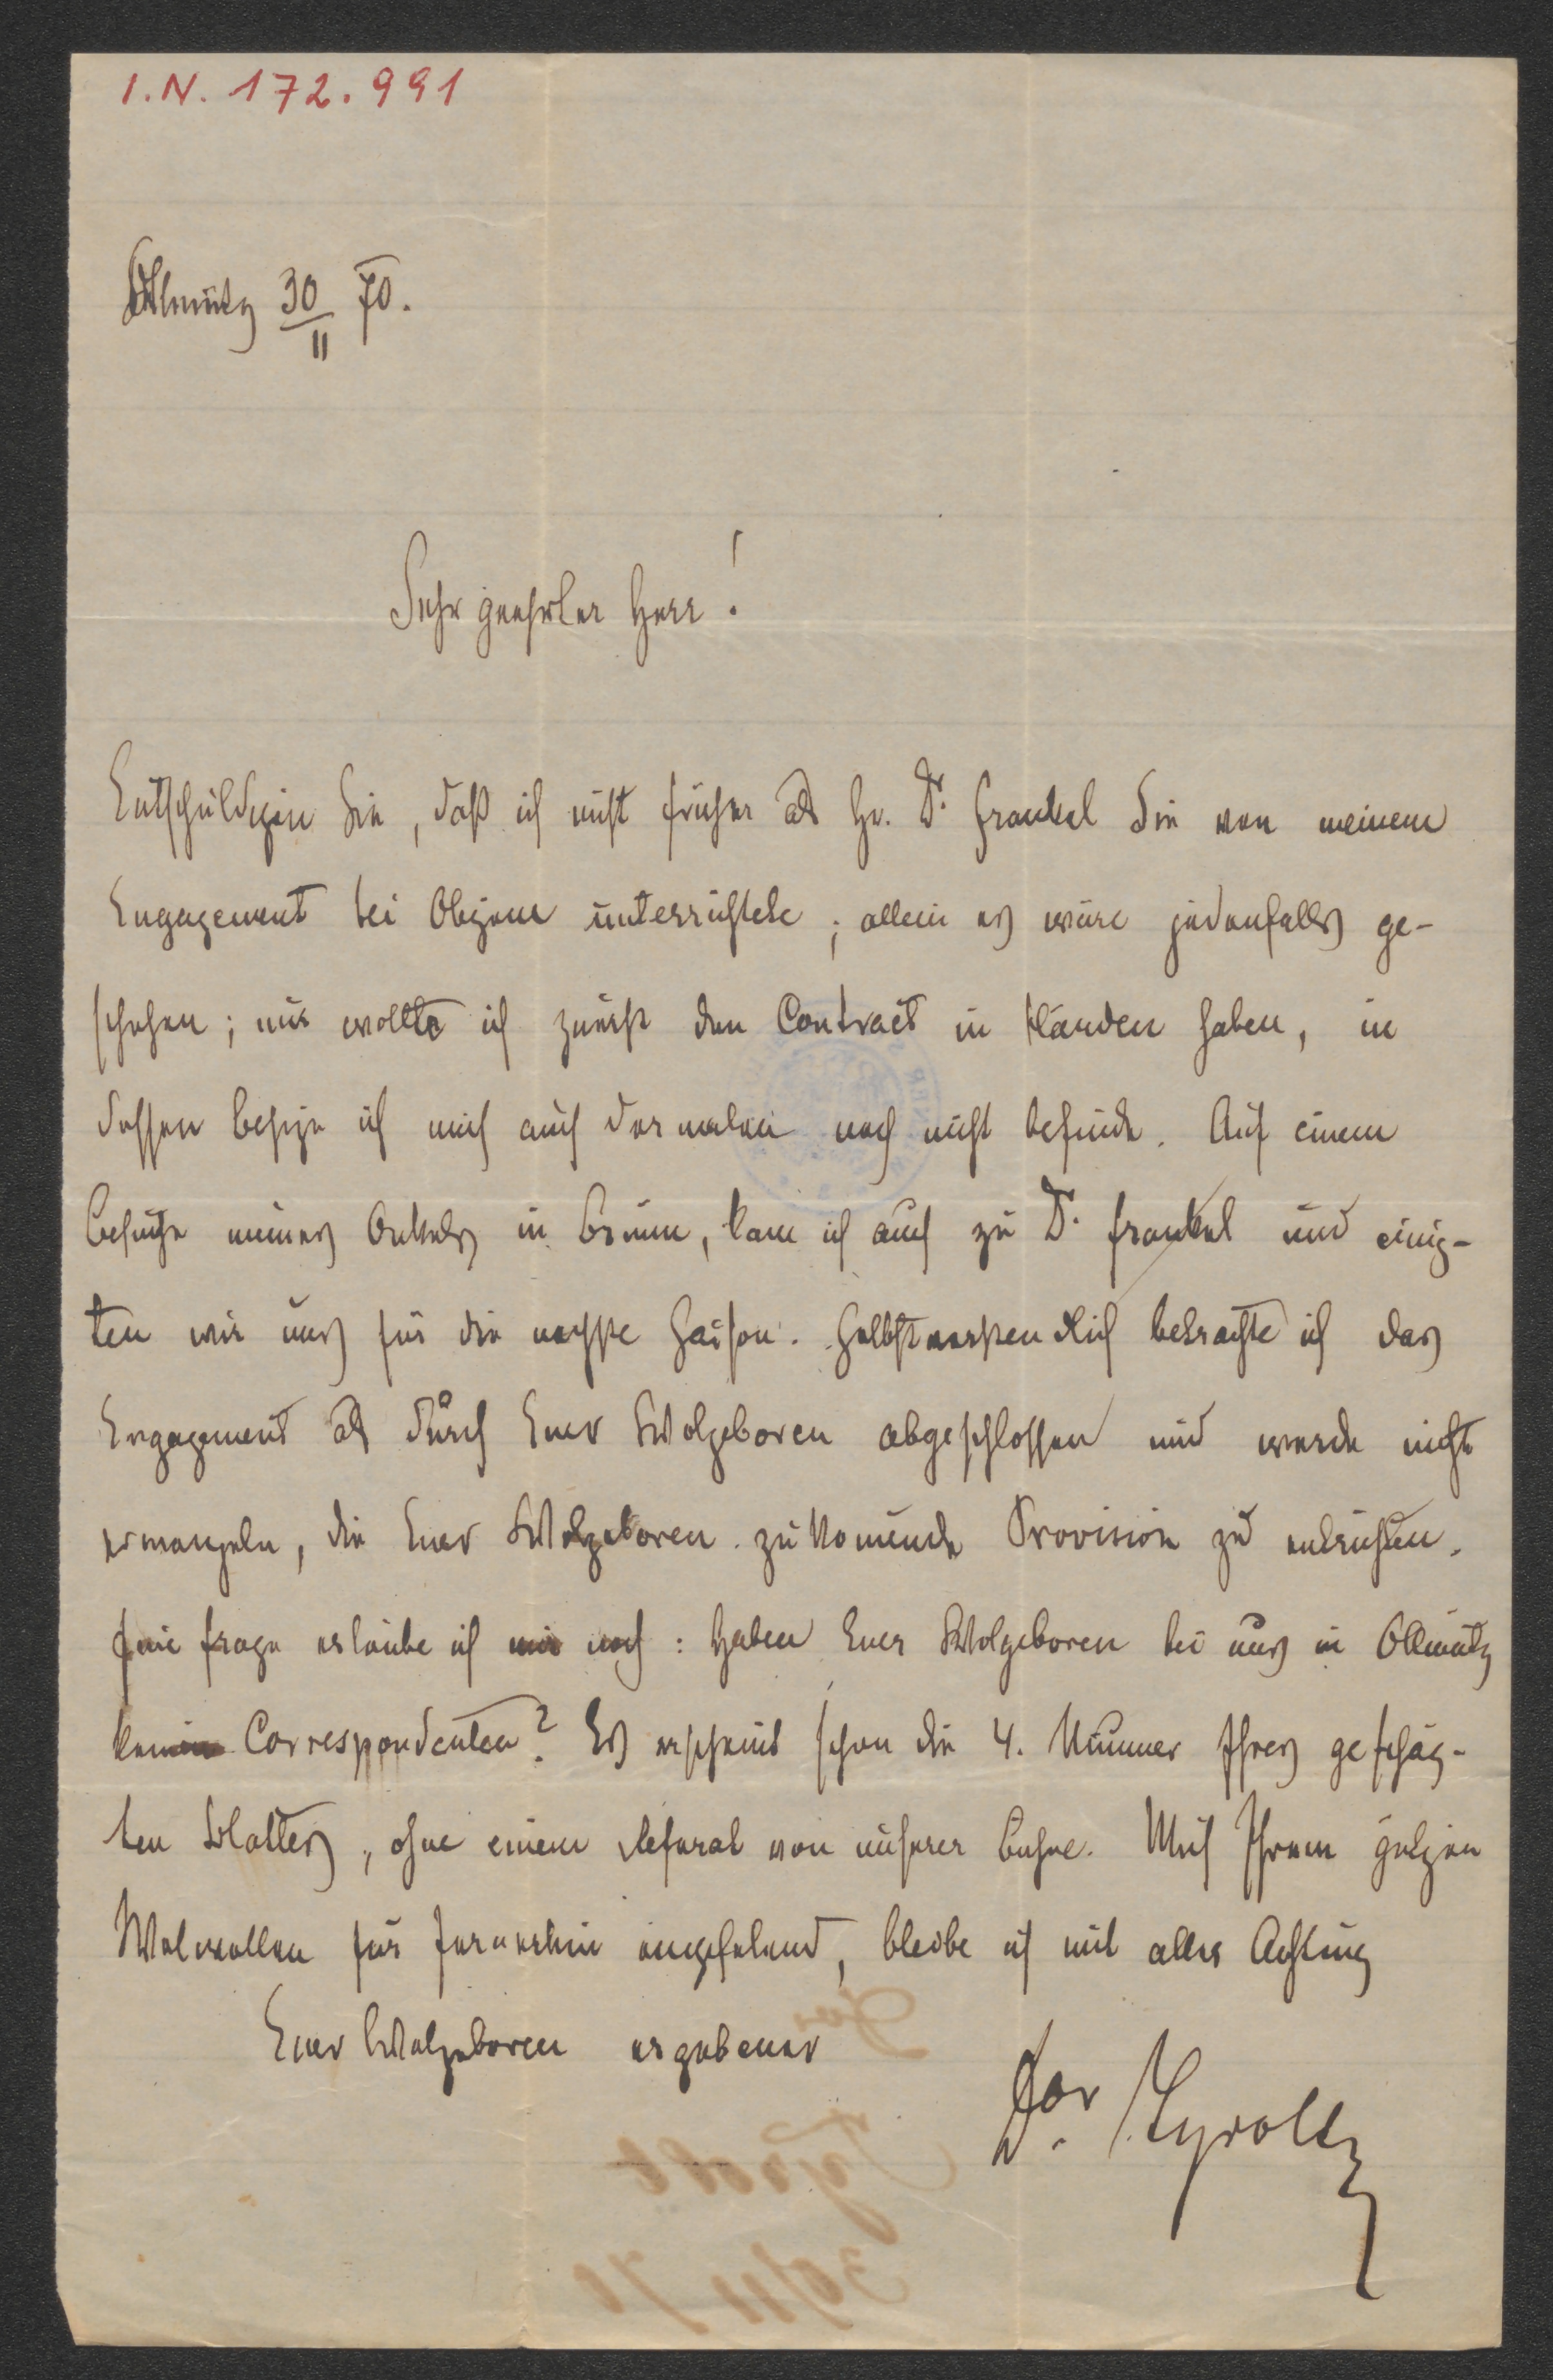 I.N. 172.991
Ollmütz 30/11 70.
Sehr geehrter Herr!
Entschuldigen Sie, daß ich nicht früher als Hr. Dr. Frankel Sie von meinem
Engagement bei Obigem unterrichtete; allein es wäre jedenfalls ge-
schehen; nur wollte ich zuerst den Contract in Händen haben, in
dessen Besize ich mich auch dermalen noch nicht befinde. Auf einem
Besuche meines Onkels in Brünn, kam ich auch zu Dr. Frankel und einig-
ten wir uns für die nechste Saison. Selbstverstendlich betrachte ich das
Engagement als durch Euer Wolgeboren abgeschlossen und werde nicht
ermangeln, die Euer Wolgeboren zukomende Provision zu entrichten.
Eine Frage erlaube ich mir noch: Haben Euer Wolgeboren bei uns in Ollmütz
keinen Correspondenten? Es erscheint schon die 4. Numer Ihres geschäz-
ten Blattes, ohne einem Referat von unserer Buhne. Mich Ihrem gütigen
Wolwollen für fernerhin empfelend, bleibe ich mit aller Achtung
Euer Wolgeboren ergebener
Dor. Tyrolt